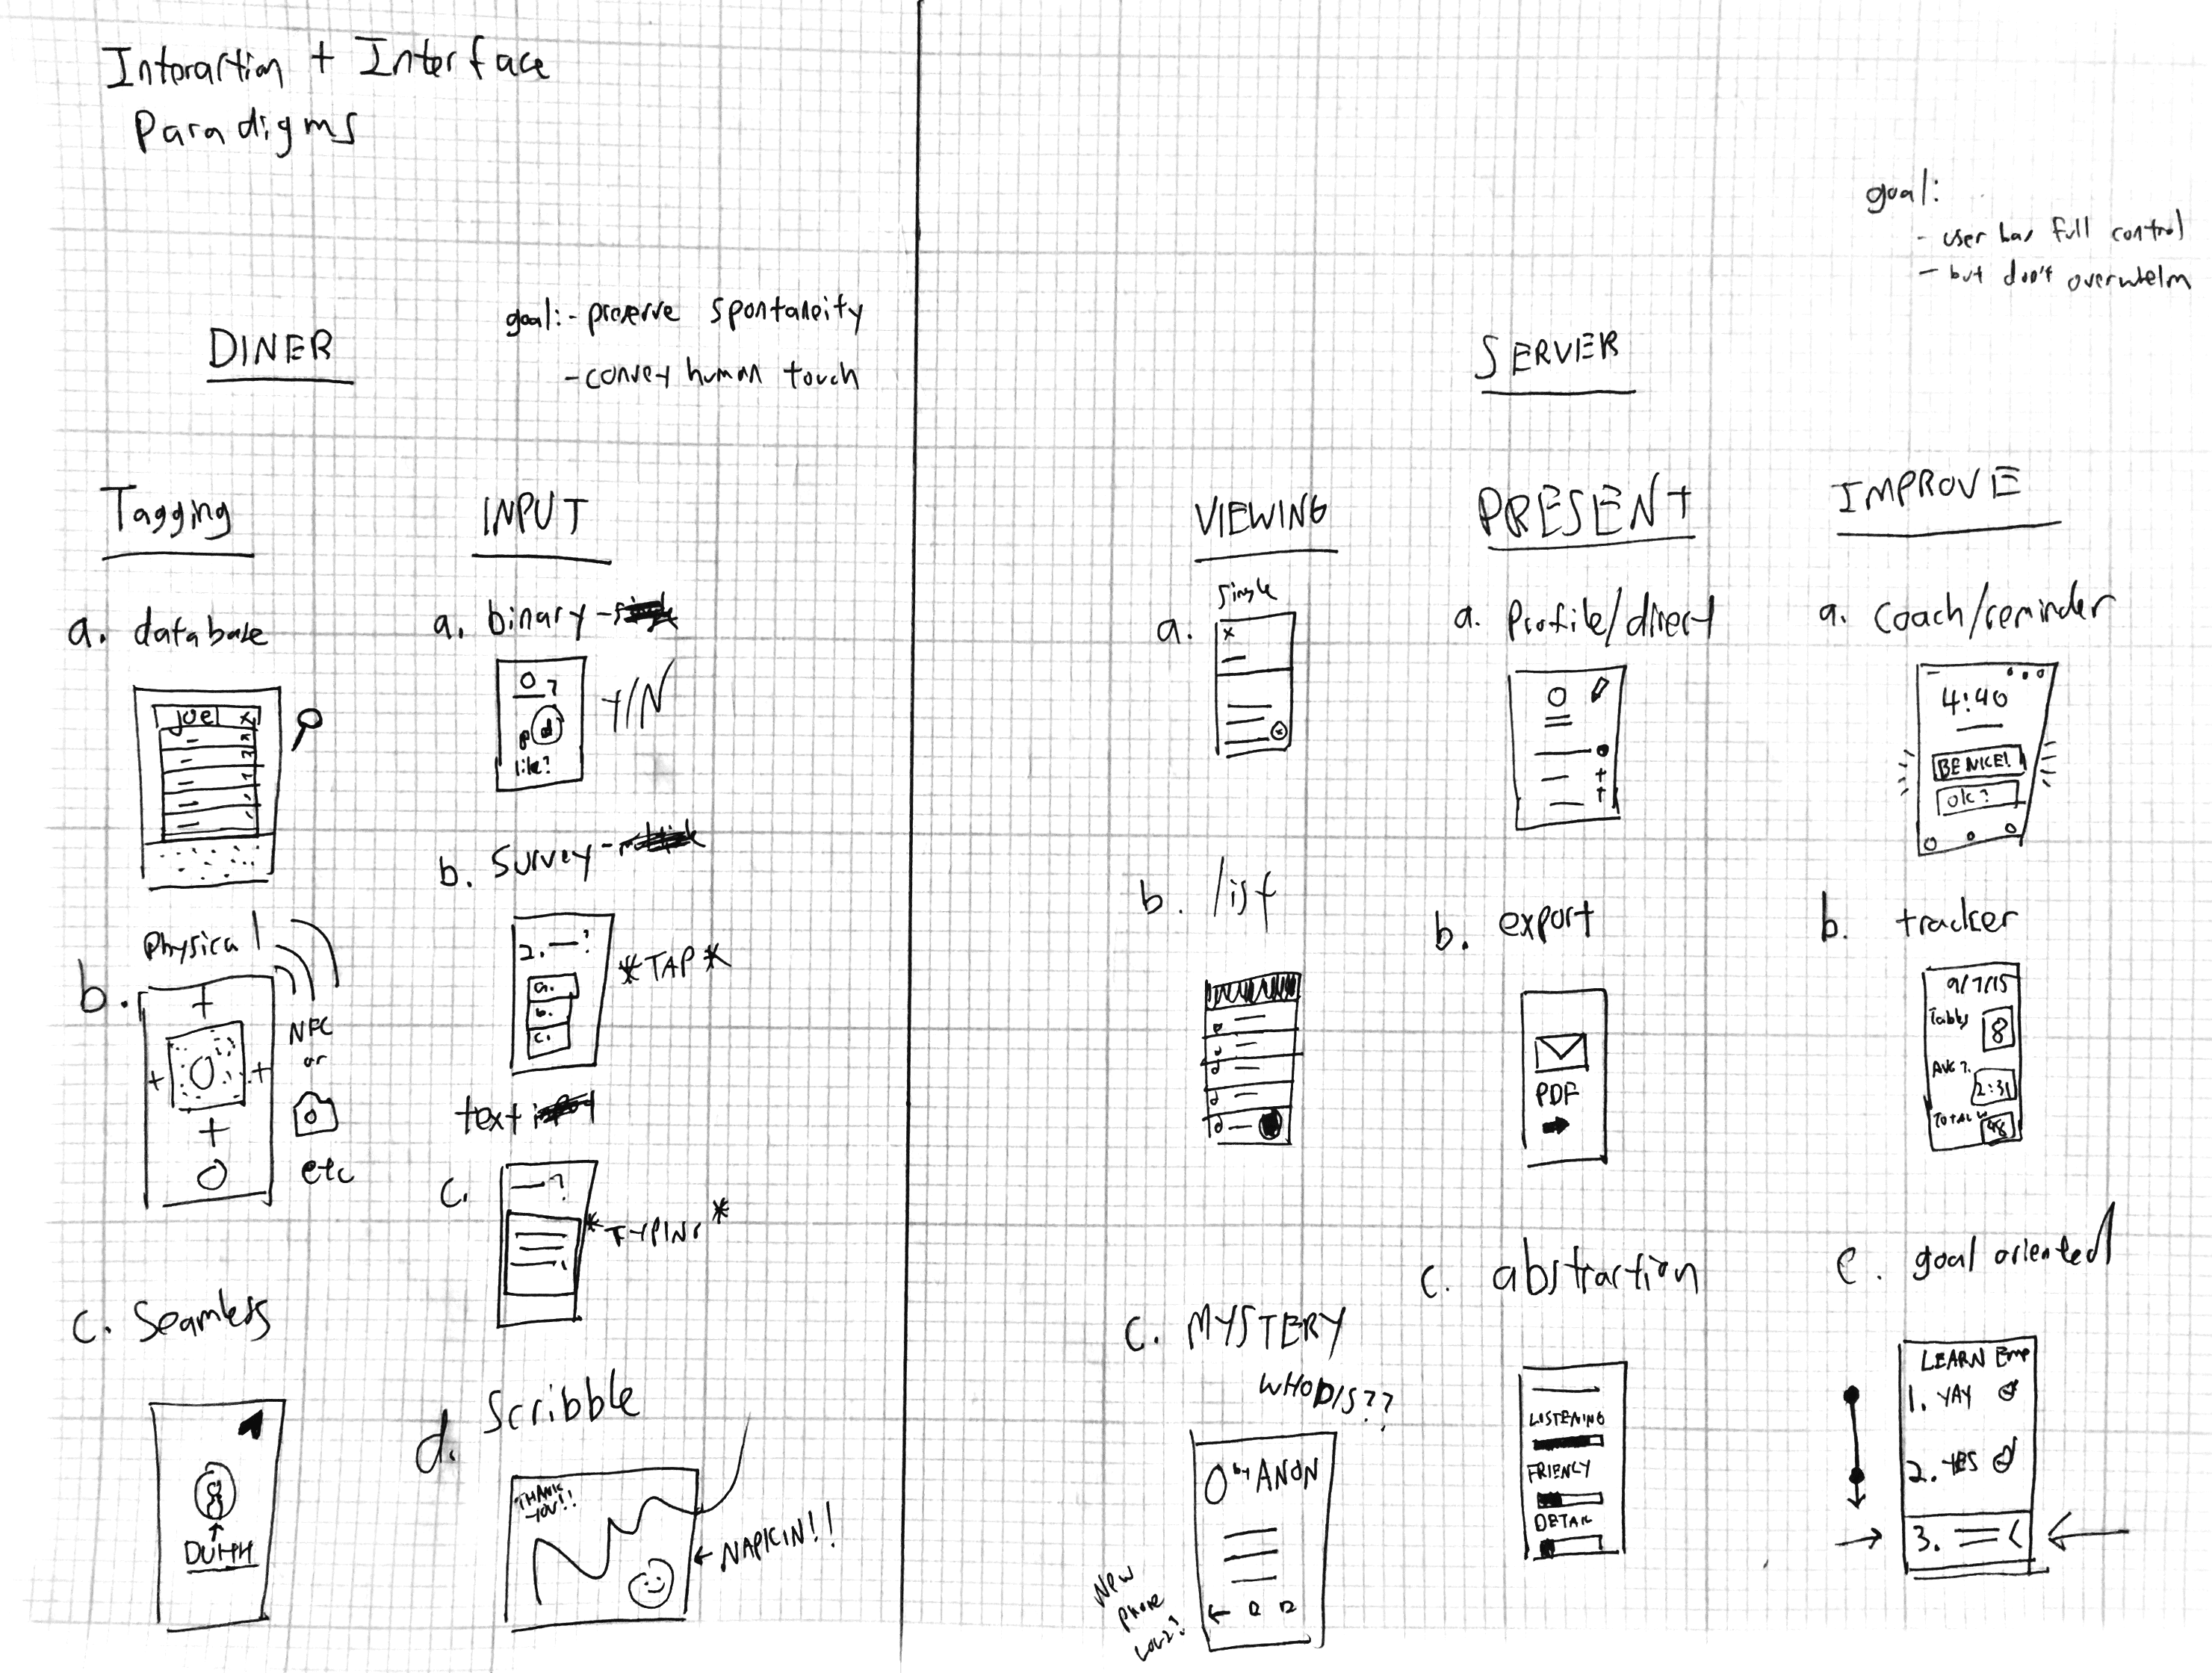 Interaction + Interface
Paradigms
DINER
goal: - preserve spontaneity
- convey human touch
Tagging
a. database
joel x
b. Physical
NFC
or
etc
c. Seamless
INPUT
a. binary -
?
Y/N
like?
b. Survey -
2. — ?
a.
b.
c.
*TAP*
text
c.
— ?
*TYPING*
d. Scribble
THANK
YOU!!
← NAPKIN!!
SERVER
goal:
- user has full control
- but don't overwhelm
VIEWING
Single
a.
x
b. list
c. MYSTERY
WHO DIS??
by ANON
New
phone
PRESENT
a. Profile/direct
b. export
PDF
c. abstraction
LISTENING
FRIENLY
DETAIL
IMPROVE
a. coach/reminder
4:40
BE NICE!
ok?
b. tracker
9/7/15
Tables
8
AVG T.
2:31
TOTAL
48
c. goal oriented
LEARN Emp
1. YAY
2. YES
3.